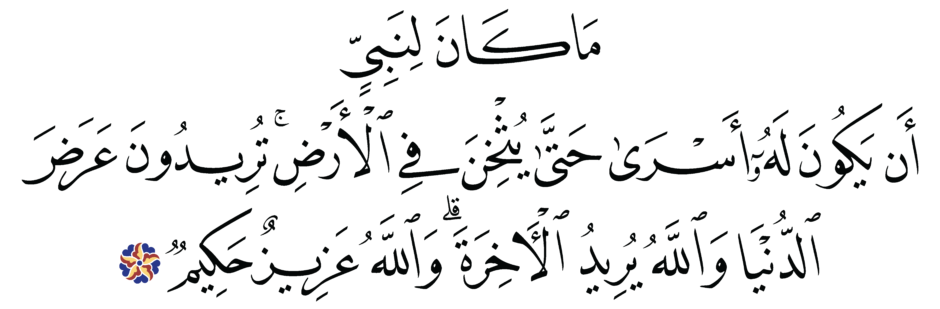 مَا كَانَ لِنَبِيٍّ
أَن يَكُونَ لَهُۥٓ أَسۡرَىٰ حَتَّىٰ يُثۡخِنَ فِي ٱلۡأَرۡضِۚ تُرِيدُونَ عَرَضَ
ٱلدُّنۡيَا وَٱللَّهُ يُرِيدُ ٱلۡأٓخِرَةَۗ وَٱللَّهُ عَزِيزٌ حَكِيمٞ